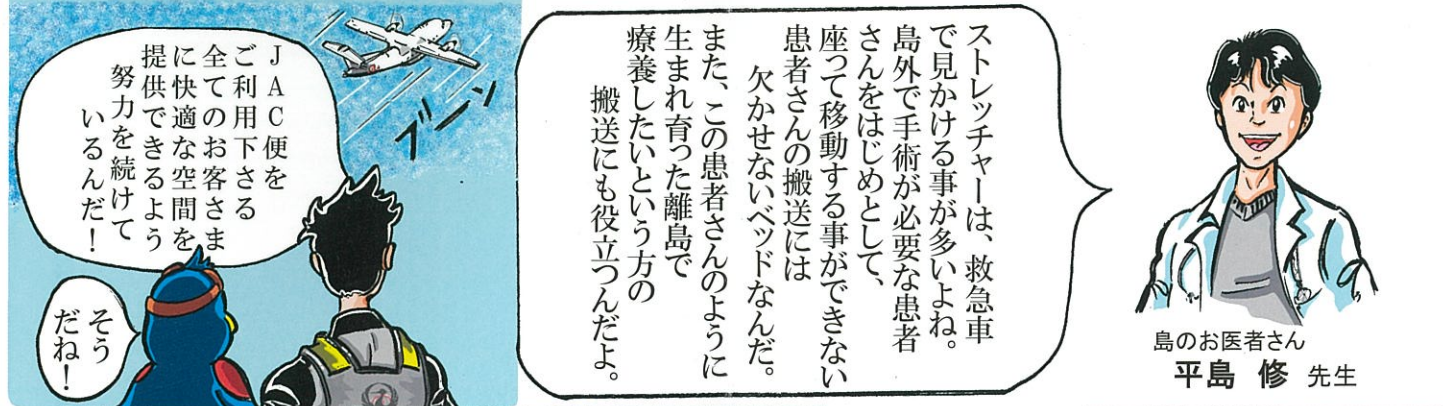 ストレッチャーは、救急車
で見かける事が多いよね。
島外で手術が必要な患者
さんをはじめとして、
座って移動する事ができない
患者さんの搬送には
欠かせないベッドなんだ。
また、この患者さんのように
生まれ育った離島で
療養したいという方の
搬送にも役立つんだよ。
島のお医者さん
平島 修 先生
ブーン
JAC便を
ご利用下さる
全てのお客さま
に快適な空間を
提供できるよう
努力を続けて
いるんだ!
そう
だね!